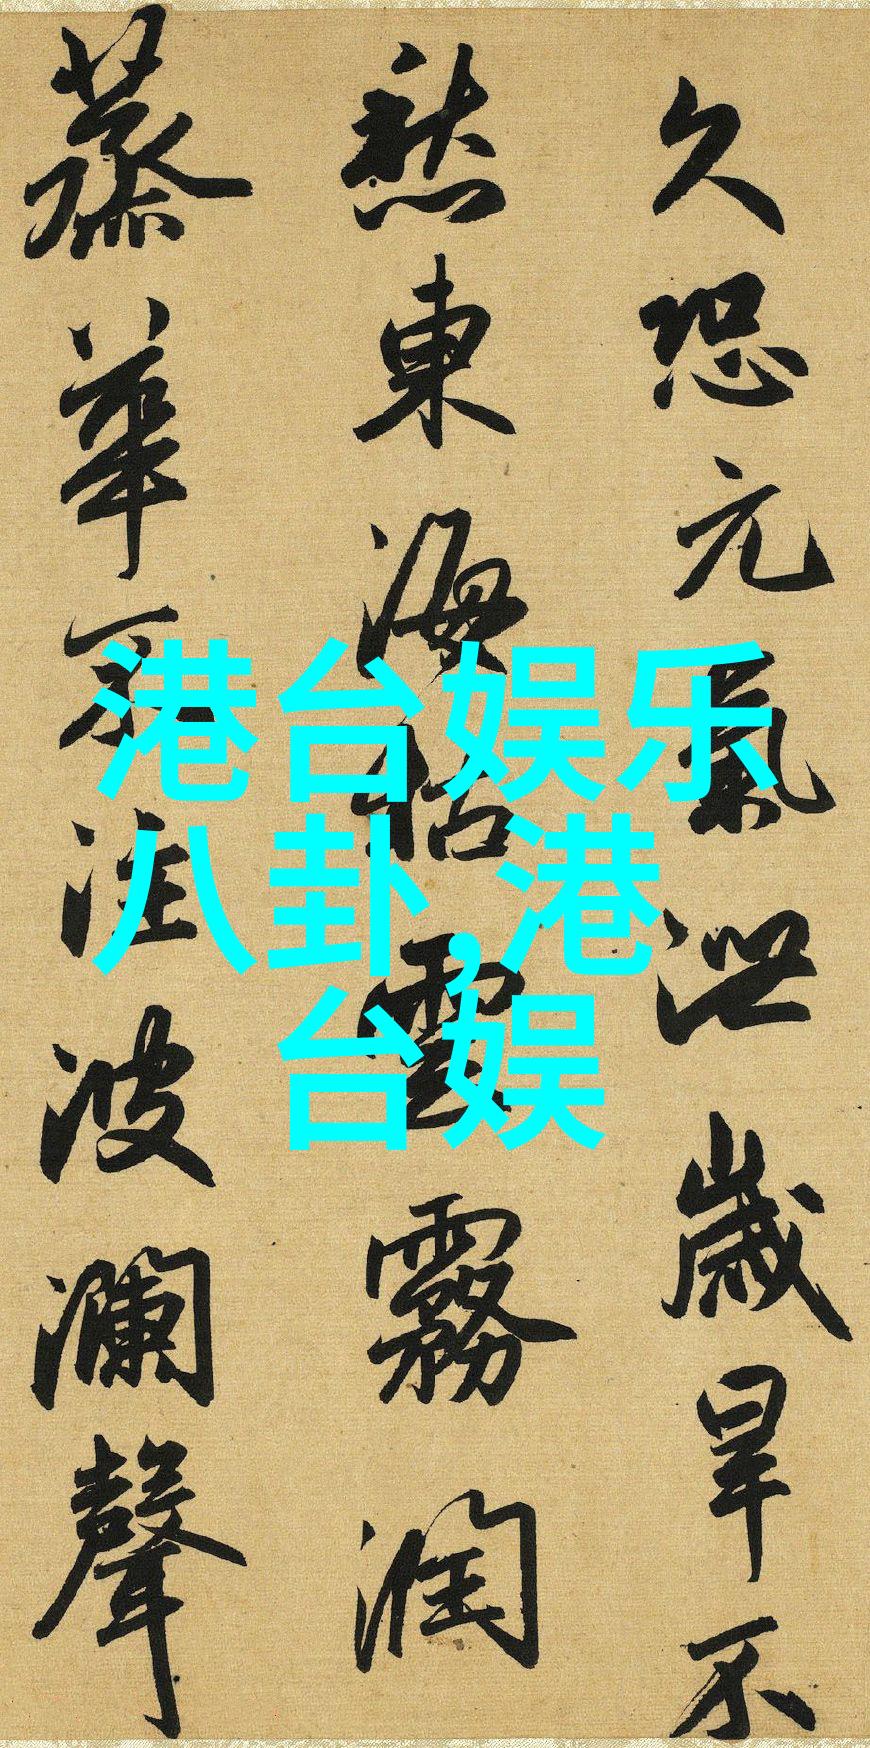 久恐元氣泄歲旱不
愁東海枯雲霧潤
蒸華不注波瀾聲
港台娱乐
八卦,港
台娱